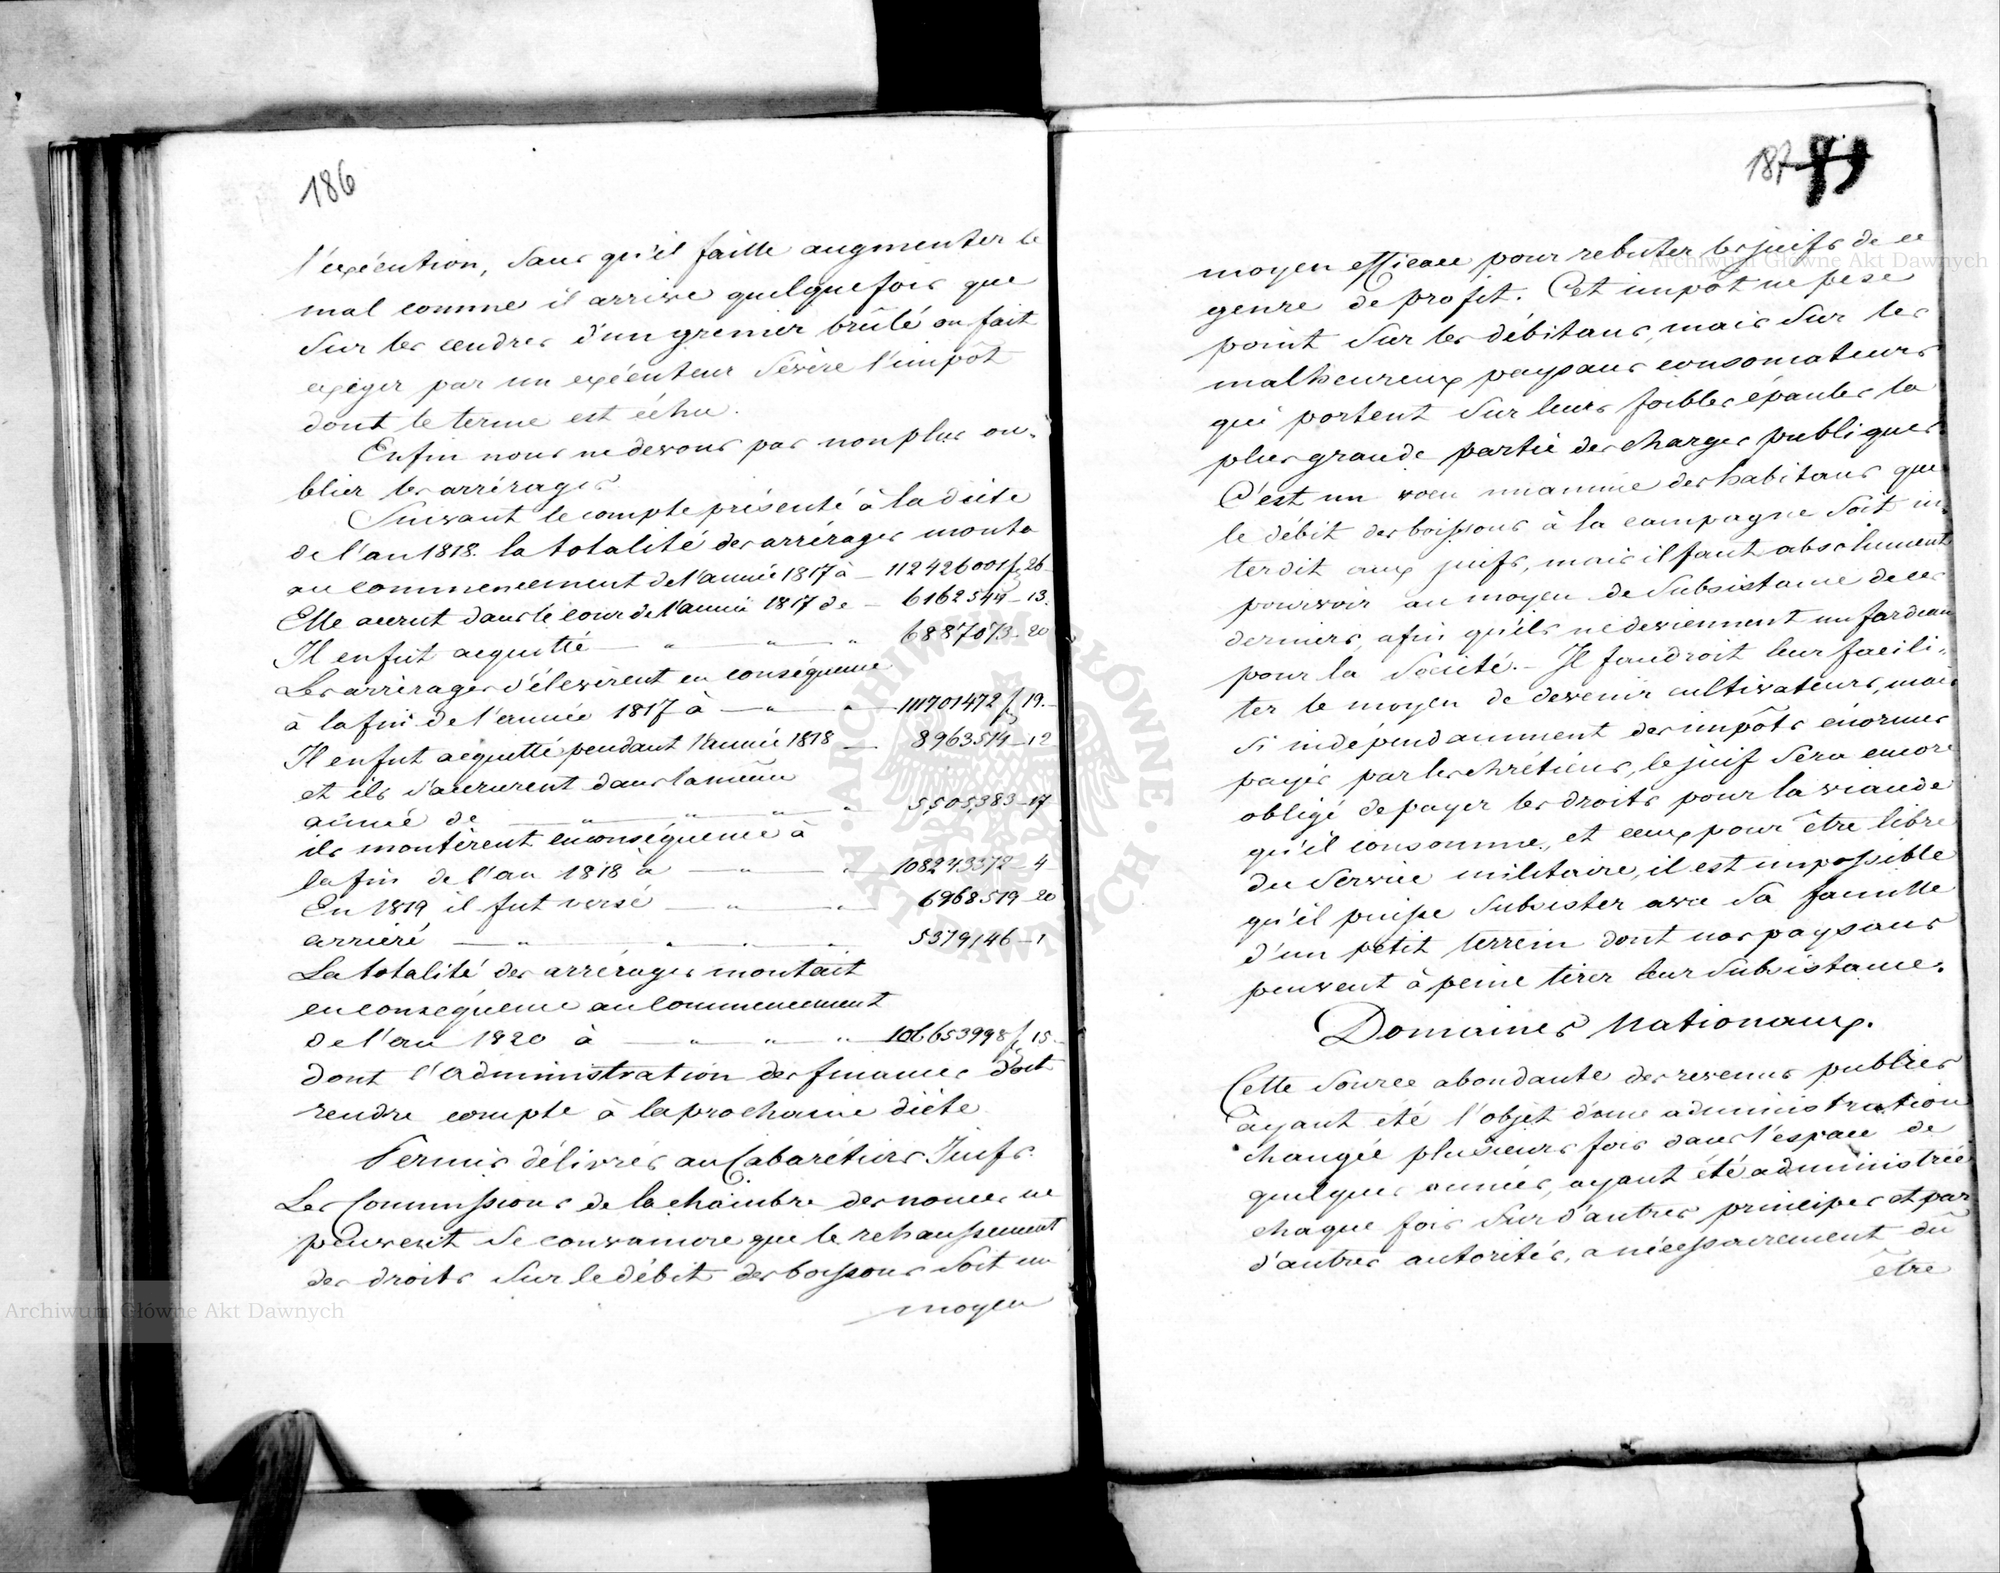 186
l'exécution, sans qu'il faille augmenter le
mal comme il arrive quelquefois que
sur les cendres d'un grenier brûlé on fait
exiger par un exécuteur sévère l'impôt
dont le terme est échu.
Enfin nous ne devons pas non plus ou-
blier les arrérages
Suivant le compte présenté à la diète
de l'an 1818. la totalité des arrérages monta
au commencement de l'année 1817 à — 112426001 f 26
Elle accrut dans le cour de l'année 1817 de — 6162544 – 13.
Il en fut acquitté — " — " — " 6887073 – 20
Les arrérages s'élevèrent en conséquence
à la fin de l'année 1817 à — " — " — 111701472 f 19.–
Il en fut acquitté pendant l'année 1818 — 8963514 – 12
et ils s'accrurent dans la même
année de — " — " — " — " 5505383 – 17
ils montèrent en conséquence à
la fin de l'an 1818 à — " — " 108243372 – 4
En 1819 il fut versé — " — " — 6968519 – 20
arriéré — " — " — " — " 5379146 – 1
La totalité des arrérages montait
en conséquence au commencement
de l'an 1820 à — " — " — " — 106653998 f 15.–
dont l'Administration des finances doit
rendre compte à la prochaine diète
Permis délivrés au Cabarétiers Juifs.
Les Commissions de la chambre des nonces ne
peuvent se convaincre que le rehaussement
des droits sur le débit des boissons soit un
moyen
187
moyen efficace pour rebuter les juifs de ce
genre de profit. Cet impôt ne pese
point sur les débitans, mais sur les
malheureux paysans consomateurs
qui portent sur leurs foibles épaules la
plus grande partie des charges publiques.
C'est un voeu unanime des habitans que
le débit des boissons à la campagne soit in-
terdit aux juifs, mais il faut absolument
pourvoir au moyen de subsistance de ces
derniers, afin qu'ils ne deviennent un fardeau
pour la société. — Il faudroit leur facili-
ter le moyen de devenir cultivateurs, mais
si indépendamment des impôts énormes
payés par les chrétiens, le juif sera encore
obligé de payer les droits pour la viande
qu'il consomme, et ceux pour être libre
du service militaire, il est impossible
qu'il puisse subsister avec sa famille
d'un petit terrein dont nos paysans
peuvent à peine tirer leur subsistance.
Domaines Nationaux.
Cette source abondante des revenus publics
ayant été l'objet d'une administration
changée plusieurs fois dans l'espace de
quelques années, ayant été administrée
chaque fois sur d'autres principes et par
d'autres autorités, a nécessairement dû
être
Archiwum Główne Akt Dawnych
Archiwum Główne Akt Dawnych
ARCHIWUM GŁÓWNE · AKT DAWNYCH ·